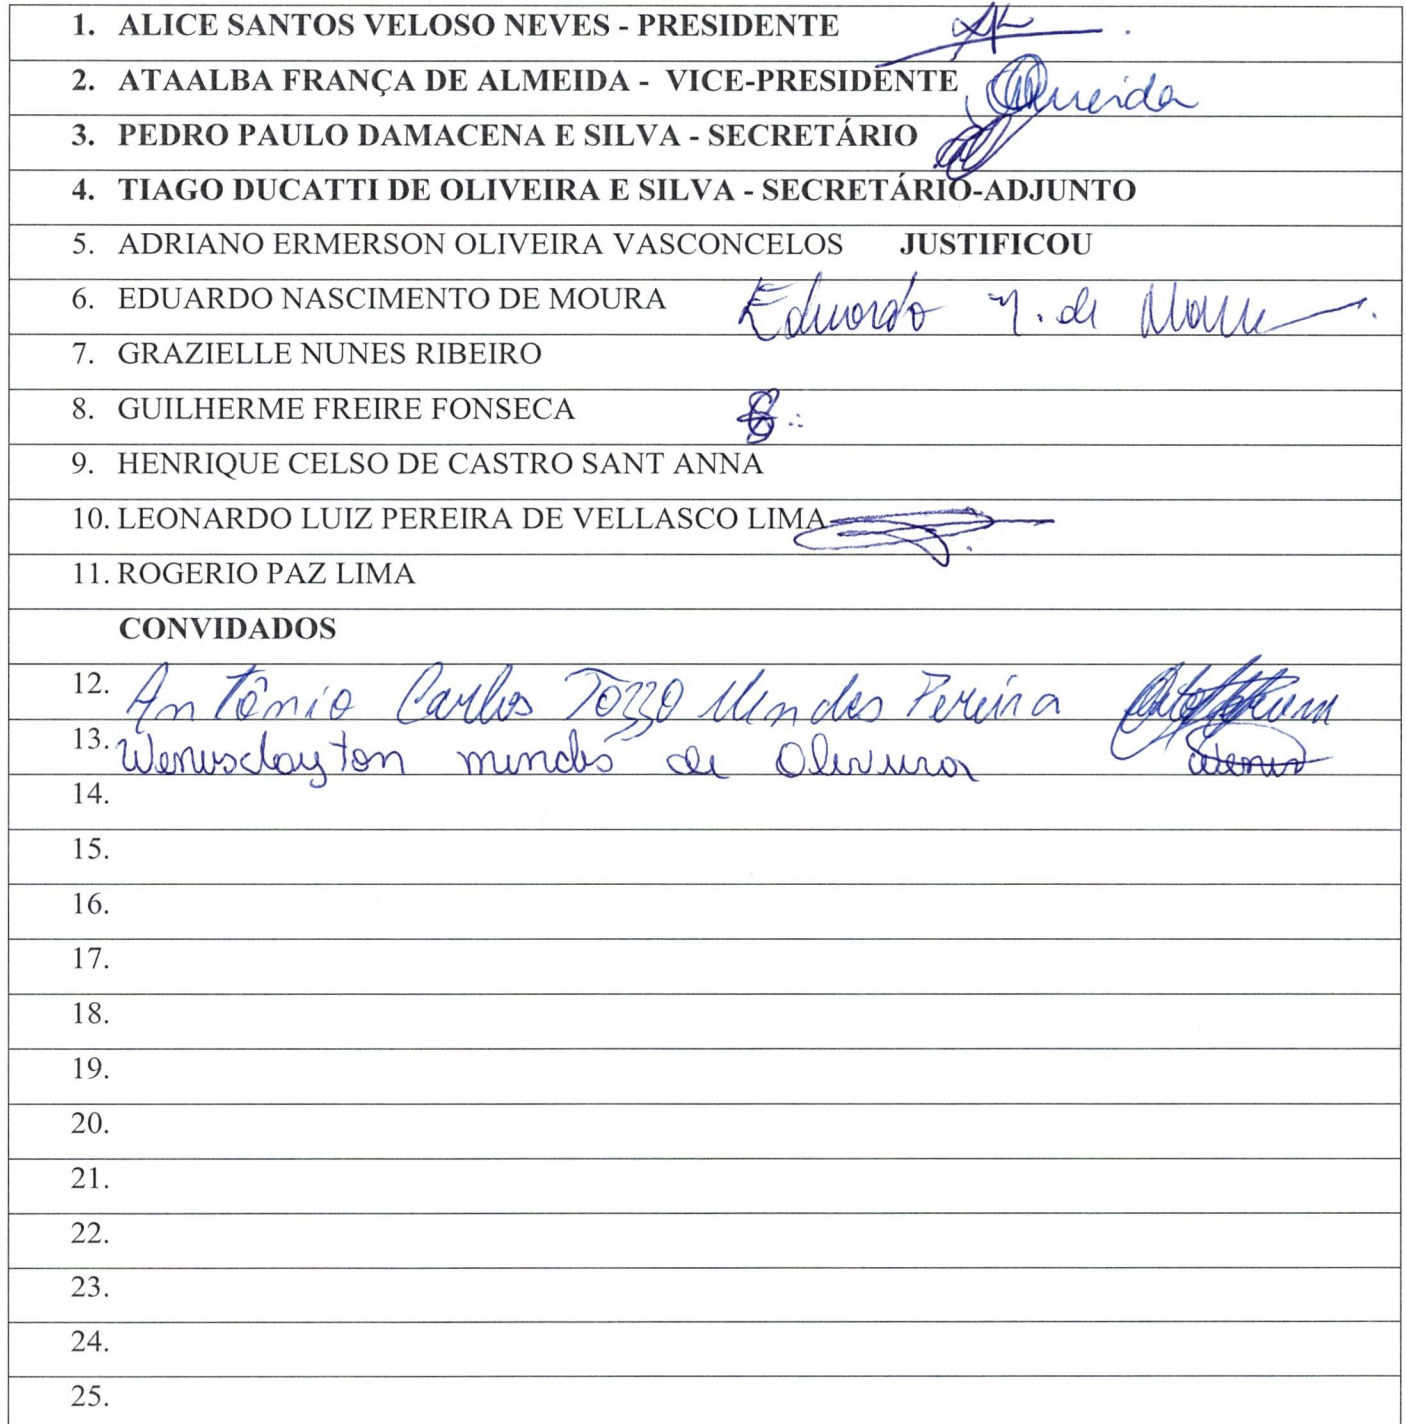 1. ALICE SANTOS VELOSO NEVES - PRESIDENTE
2. ATAALBA FRANÇA DE ALMEIDA - VICE-PRESIDENTE Almeida
3. PEDRO PAULO DAMACENA E SILVA - SECRETÁRIO
4. TIAGO DUCATTI DE OLIVEIRA E SILVA - SECRETÁRIO-ADJUNTO
5. ADRIANO ERMERSON OLIVEIRA VASCONCELOS JUSTIFICOU
6. EDUARDO NASCIMENTO DE MOURA Eduardo N. de Moura
7. GRAZIELLE NUNES RIBEIRO
8. GUILHERME FREIRE FONSECA
9. HENRIQUE CELSO DE CASTRO SANT ANNA
10. LEONARDO LUIZ PEREIRA DE VELLASCO LIMA
11. ROGERIO PAZ LIMA
CONVIDADOS
12. Antônio Carlos Tozzo Mendes Pereira
13. Wenisclayton mendes de Oliveira
14.
15.
16.
17.
18.
19.
20.
21.
22.
23.
24.
25.